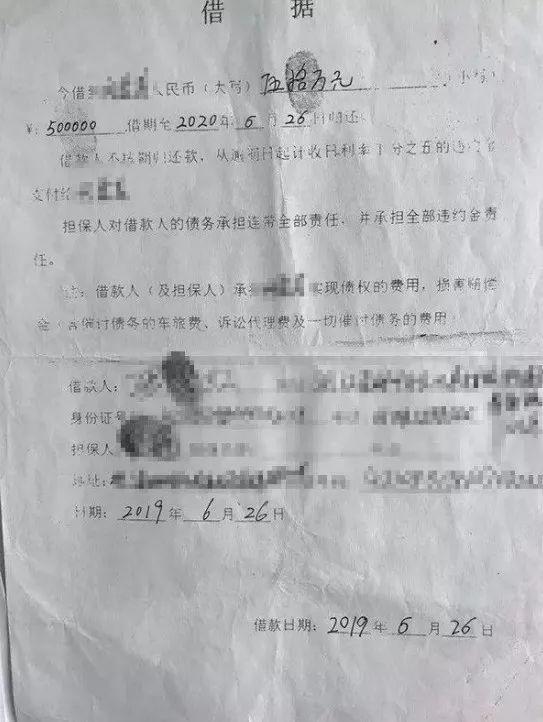 借 据
今借到 人民币（大写）伍拾万元 （小写）
￥：500000 借期至2020年6月26日归还
借款人不按期归还款，从逾期日起计收日利率千分之五的违约金
支付给
担保人对借款人的债务承担连带全部责任，并承担全部违约金责
任。
注：借款人（及担保人）承担 实现债权的费用，损害赔偿
金（含催讨债务的车旅费、诉讼代理费及一切催讨债务的费用）
借款人：
身份证号
担保人
地址：
日期：2019年6月26日
借款日期：2019年6月26日